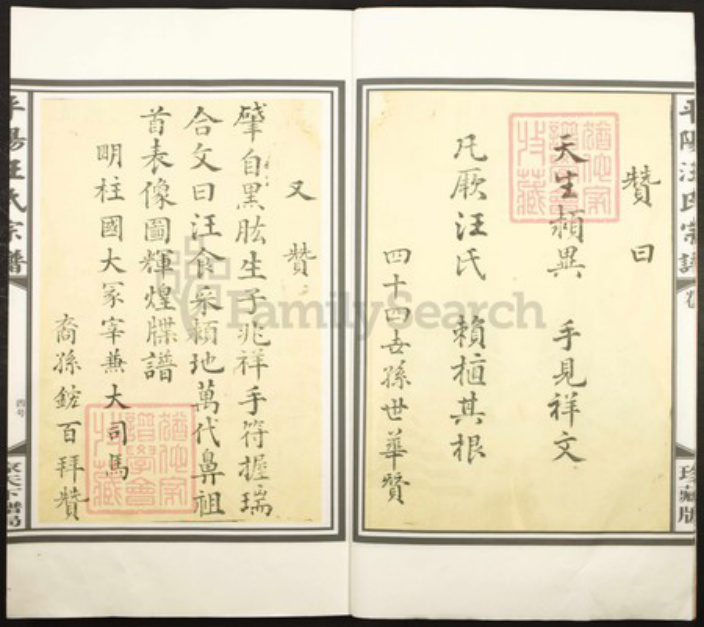 平陽汪氏宗譜
珍藏版
贊曰
天生穎異 手見祥文
凡厥汪氏 賴植其根
四十四世孫世華贊
又贊
肇自黑肱生子兆祥手符握瑞
合文曰汪食采潁地萬代鼻祖
首表像圖輝煌牒譜
明柱國大冢宰兼大司馬
裔孫鋐百拜贊
平陽汪氏宗譜
四号
FamilySearch